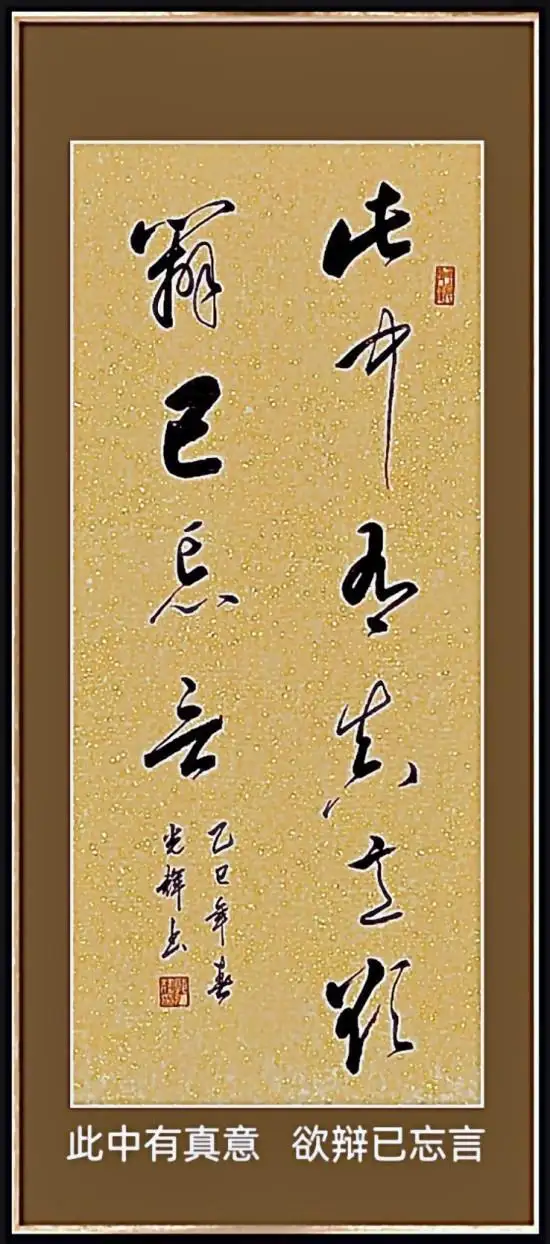 此中有真意欲
辩已忘言
乙巳年春
光辉书
此中有真意 欲辩已忘言